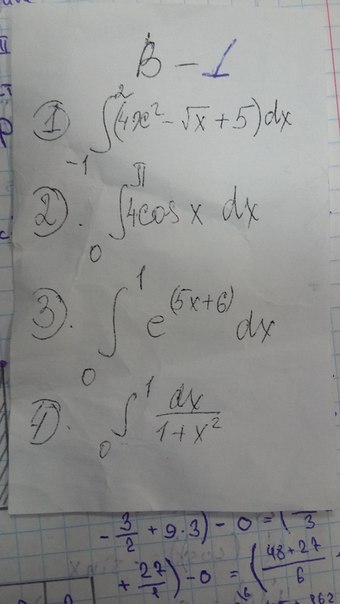 В – 1
① ∫₋₁² (4x² – √x + 5) dx
2). ∫₀^π 4cos x dx
3). ∫₀¹ e^(5x+6) dx
4). ∫₀¹ dx/(1+x²)
- 3/2 + 9·3) – 0 =
+ 27/ ) – 0 = (48+27/6